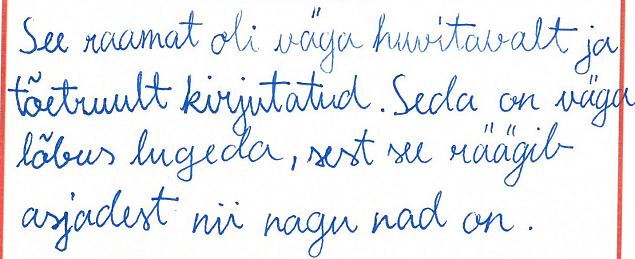 See raamat oli väga huvitavalt ja
tõetruult kirjutatud. Seda on väga
lõbus lugeda, sest see räägib
asjadest nii nagu nad on.